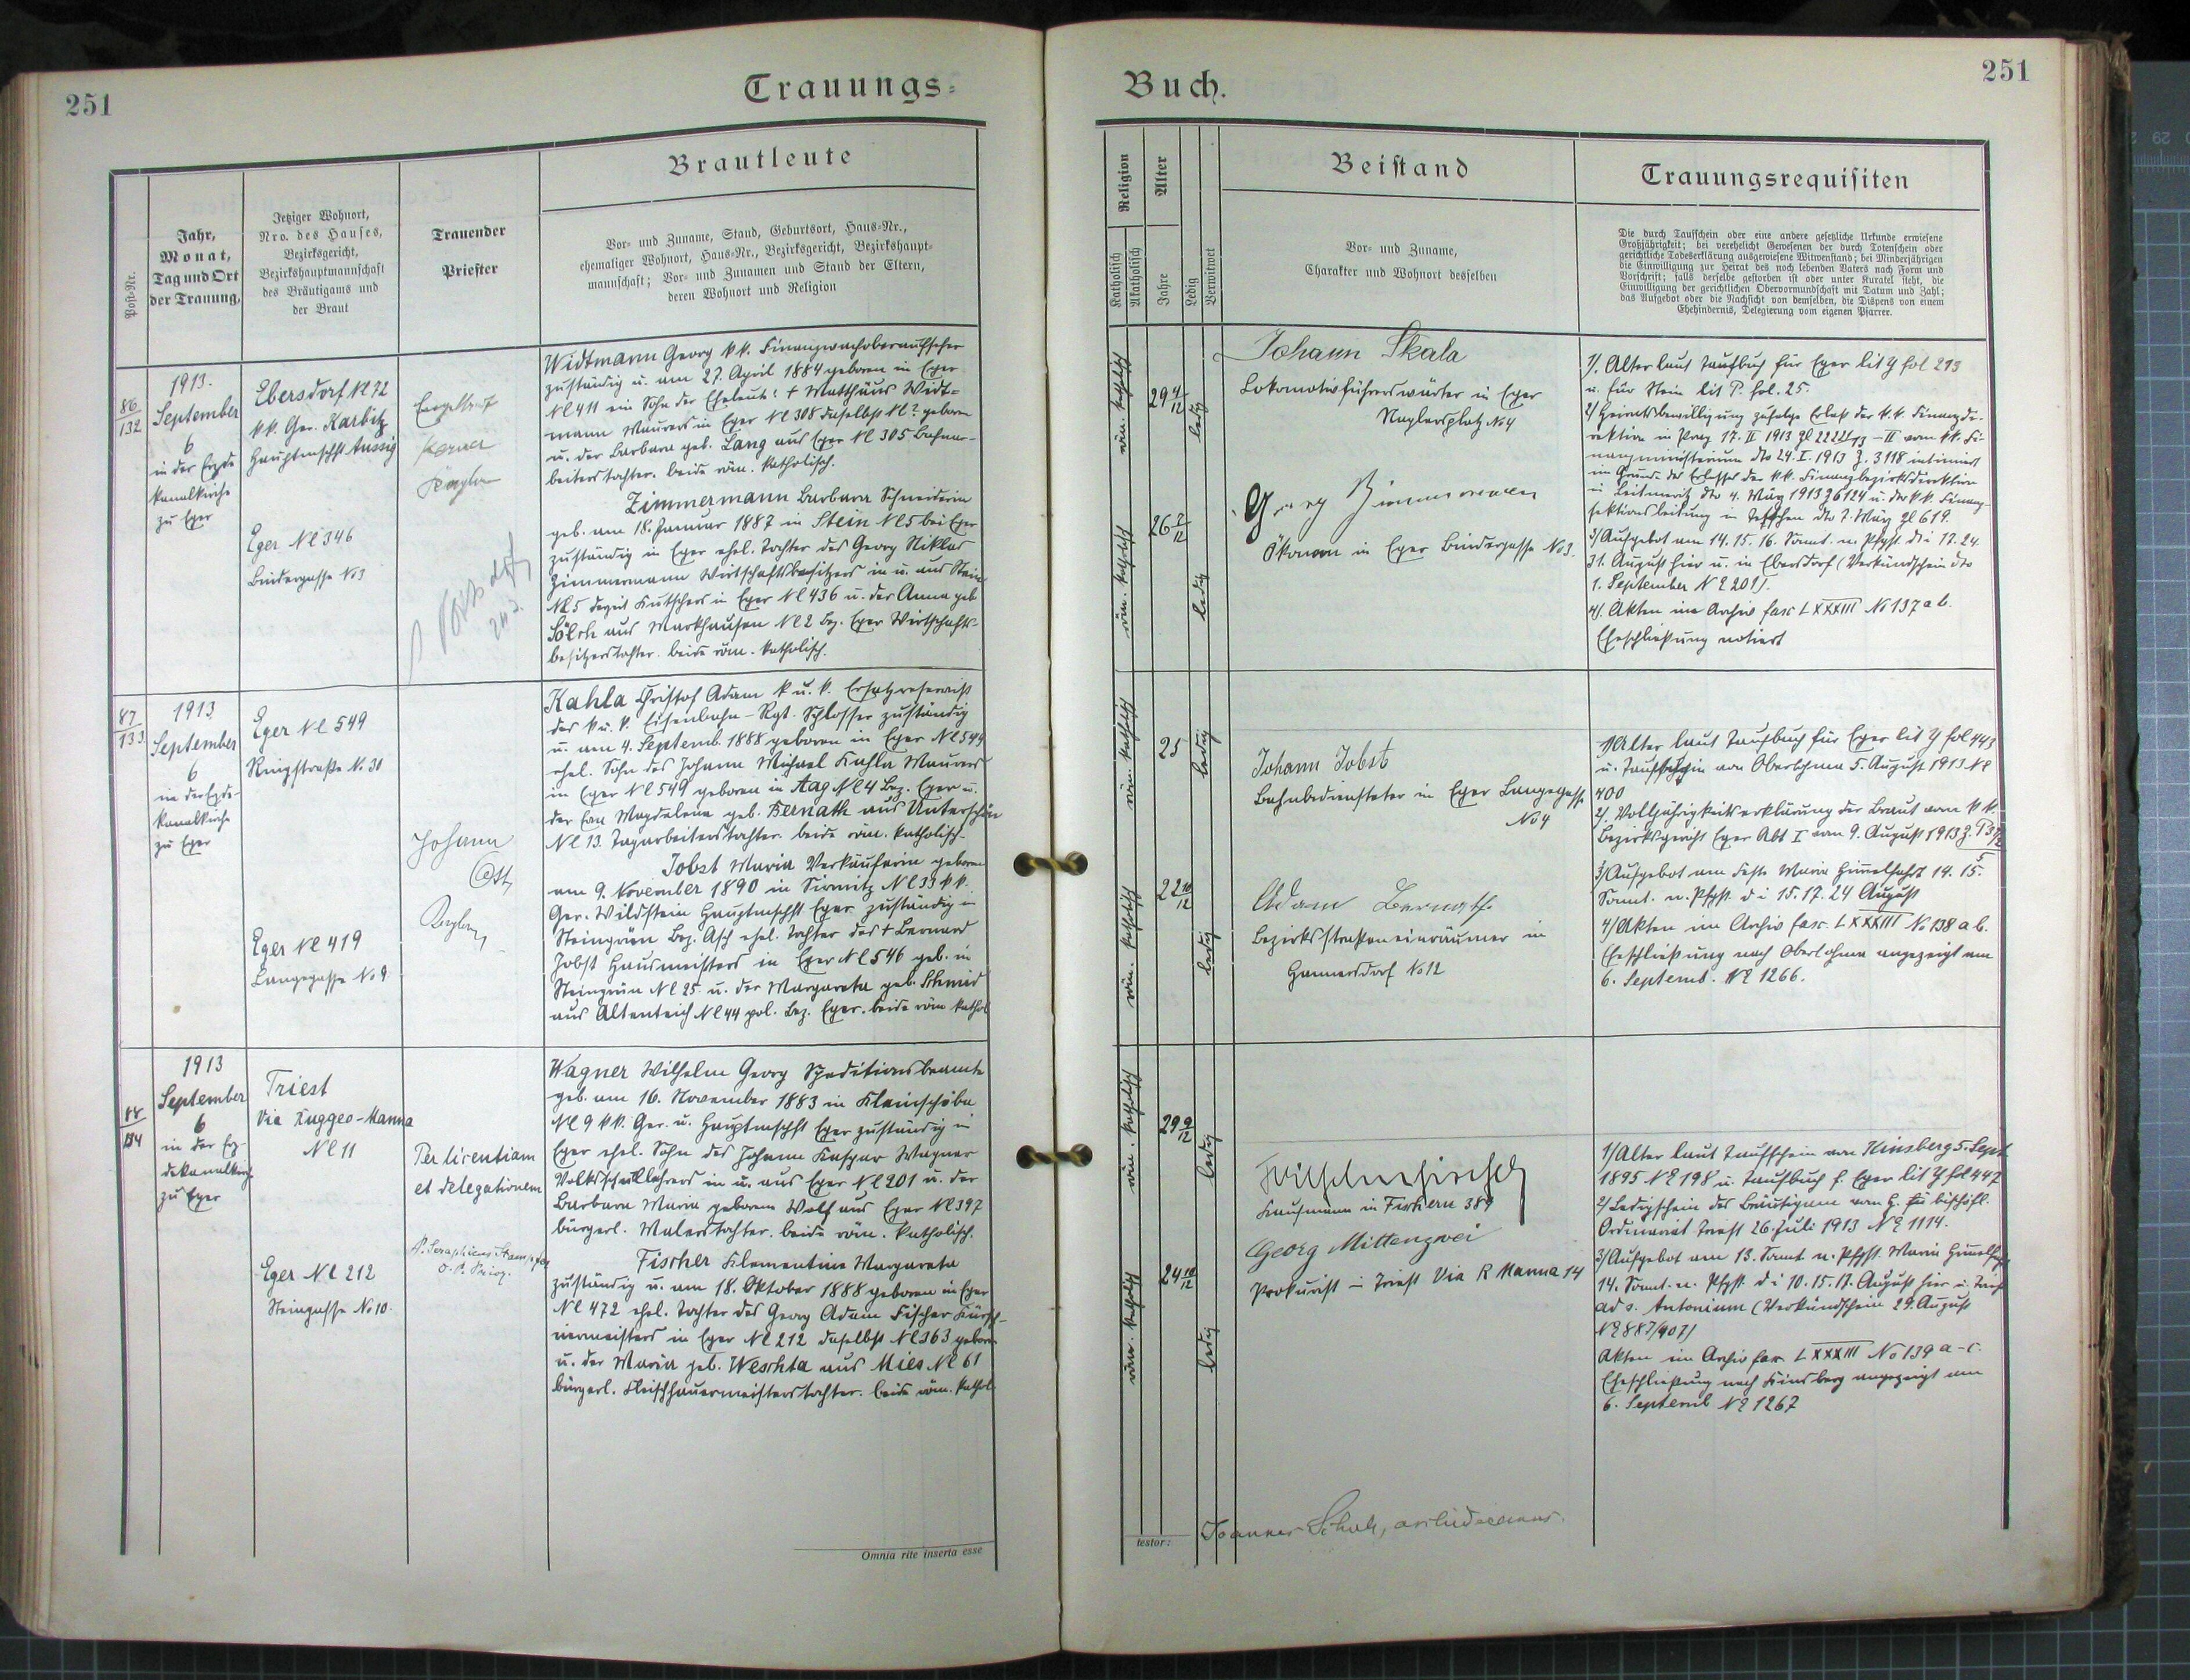 251
Trauungs-
Buch.
251
Brautleute
Post-Nr.
Jahr,
Monat,
Tag und Ort
der Trauung,
Jetziger Wohnort,
Nro. des Hauses,
Bezirksgericht,
Bezirkshauptmannschaft
des Bräutigams und
der Braut
Trauender
Priester
Vor- und Zuname, Stand, Geburtsort, Haus-Nr.,
ehemaliger Wohnort, Haus-Nr., Bezirksgericht, Bezirkshaupt-
mannschaft; Vor- und Zunamen und Stand der Eltern,
deren Wohnort und Religion
86
132
1913.
September
6
in der Erzde
kanalkirche
zu Eger
Ebersdorf N.C. 72
k.k. Ger. Karbitz
Hauptmschft Aussig
Eger NC 346
Bindergasse No 3
Engelbert
Karner
Kaplan
Widtmann Georg k.k. Finanzwachoberaufseher
zuständig u. am 27. April 1884 geboren in Eger
NC 411 ein Sohn der Eheleute: † Matthäus Widt-
mann Maurers in Eger NC 308 daselbst NC ? geboren
u. der Barbara geb. Lang aus Eger NC 305 Bahnar-
beiterstochter. beide röm. katholisch.
Zimmermann Barbara Schneiderin
geb. am 18. Januar 1887 in Stein NC 5 bei Eger
zuständig in Eger ehel. Tochter des Georg Niklas
Zimmermann Wirtschaftsbesitzers in u. aus Stein
NC 5 derzeit Kutschers in Eger NC 436 u. der Anna geb
Sölch aus Markhausen NC 2 Bez. Eger Wirtschafts-
besitzerstochter. beide röm. katholisch.
87
133
1913
September
6
in der Erzde-
kanalkirche
zu Eger
Eger NC 549
Ringstraße No. 31
Eger NC 419
Langegasse No 9
Johann
Ott,
Kaplan
Kahla Christof Adam k.u.k. Ersatzreservist
des k.u.k. Eisenbahn-Rgt. Schlosser zuständig
u. am 4. Septemb. 1888 geboren in Eger NC 549
ehel. Sohn des Johann Michael Kahla Maurers
in Eger NC 549 geboren in Aag NC 4 Bez. Eger u.
der Eva Magdalena geb. Bernath aus Unterschön
NC 13. Tagarbeiterstochter. beide röm. katholisch.
Jobst Maria Verkäuferin geboren
am 9. November 1890 in Sirmitz NC 33 k.k.
Ger. Wildstein Hauptmschft Eger zuständig in
Steingrün Bez. Asch ehel. Tochter des † Bernard
Jobst Hausmeisters in Eger NC 546 geb. in
Steingrün NC 25 u. der Margareta geb. Schmid
aus Altenteich NC 44 pol. Bez. Eger. beide röm kathol
88
134
1913
September
6
in der Erz-
dekanalkirche
zu Eger
Triest
Via Ruggeo-Manna
NC 11
Eger N.C. 212
Steingasse No 10.
Per licentiam
et delegationem
P. Seraphicus
Wagner Wilhelm Georg Speditionsbeamte
geb. am 16. November 1883 in Kleinschöba
NC 9 k.k. Ger. u. Hauptmschft Eger zuständig in
Eger ehel. Sohn des Johann Kaspar Wagner
Volksschullehrers in u. aus Eger NC 201 u. der
Barbara Maria geborene Wolf aus Eger NC 397
bürgerl. Malerstochter. beide röm. katholisch.
Fischer Klementine Margareta
zuständig u. am 18. Oktober 1888 geboren in Eger
NC 472 ehel. Tochter des Georg Adam Fischer Kürsch-
nermeisters in Eger NC 212 daselbst NC 363 geboren
u. der Maria geb. Weschta aus Mies NC 61
bürgerl. Fleischhauermeisterstochter. beide röm. kathol.
Omnia rite inserta esse
Religion
Alter
Katholisch
Akatholisch
Jahre
Ledig
Verwitwet
Beistand
Vor- und Zuname,
Charakter und Wohnort desselben
Trauungsrequisiten
Die durch Taufschein oder eine andere gesetzliche Urkunde erwiesene
Großjährigkeit; bei verehelicht Gewesenen der durch Totenschein oder
gerichtliche Todeserklärung ausgewiesene Witwenstand; bei Minderjährigen
die Einwilligung zur Heirat des noch lebenden Vaters nach Form und
Vorschrift; falls derselbe gestorben ist oder unter Kuratel steht, die
Einwilligung der gerichtlichen Obervormundschaft mit Datum und Zahl;
das Aufgebot oder die Nachsicht von demselben, die Dispens von einem
Ehehindernis, Delegierung vom eigenen Pfarrer.
röm. katholisch
29 4/12
ledig
röm. katholisch
26 7/12
ledig
Johann Skala
Lokomotivführeranwärter in Eger
Naglersplatz No 4
Georg Zimmermann
Ökonom in Eger Bindergasse No 3.
1/. Alter laut Taufbuch für Eger lit Y fol 293
u. für Stein lit P. fol. 25.
2/ Heiratsbewilligung zufolge Erlaß der k.k. Finanzdi-
rektion in Prag 17. II 1913 Zl 2222/13 - II vom k.k. Fi-
nanzministerium dto 24. I. 1913 Z. 3118 intimiert
im Grunde der Erlasses der k.k. Finanzbezirksdirektion
in Leitmeritz dto 4. März 1913 Z 6124 u. der k.k. Finanz-
sektionsleitung in Tetschen dto 7. März Zl 619.
3/ Aufgebot am 14. 15. 16. Sonnt. n. Pfgst. d i 17. 24.
31. August hier u. in Ebersdorf (Verkündschein dto
1. September NE 201).
4/. Akten im Archiv fasc LXXXIII No 137 a b.
Eheschließung notiert
röm. katholisch
25
ledig
röm. katholisch
22 10/12
ledig
Johann Jobst
Bahnbediensteter in Eger Langegasse
No 4
Adam Bernath
Bezirksstraßeneinräumer in
Gaunersdorf No 12
1/ Alter laut Taufbuch für Eger lit Y fol 443
u. Taufschein von Oberlohma 5. August 1913 NE
400
2/. Volljährigkeitserklärung der Braut vom k.k.
Bezirksgericht Eger Abt I vom 9. August 1913
3/ Aufgebot am Feste Maria Himmelfahrt 14. 15.
Sonnt. n. Pfgst. d i 15. 17. 24 August
4/ Akten im Archiv fasc. LXXXIII No 138 a b.
Eheschließung nach Oberlohma angezeigt am
6. Septemb. NE 1266.
röm. katholisch
29 9/12
ledig
röm. katholisch
24 10/12
ledig
Kaufmann in Fischern 389
Georg Mittenzwei
Prokurist in Triest Via R Manna 14
1/ Alter laut Taufschein von Kinsberg 5. Sept
1895 NE 198 u. Taufbuch f. Eger lit Y fol 447
2/ Ledigschein des Bräutigam vom bischöfl.
Ordinariat Triest 26. Juli 1913 NE 1114.
3/ Aufgebot am 13. Sonnt. n. Pfgst. Maria Himmelfahrt
14. Sonnt. n. Pfgst. d i 10. 15. 17. August hier u. Triest
ad s. Antonium (Verkündschein 29. August
NE 887/907)
Akten im Archiv fasc. LXXXIII No 139 a-c.
Eheschließung nach Kinsberg angezeigt am
6. Septemb NE 1267
testor:
Joannes archidecanus.